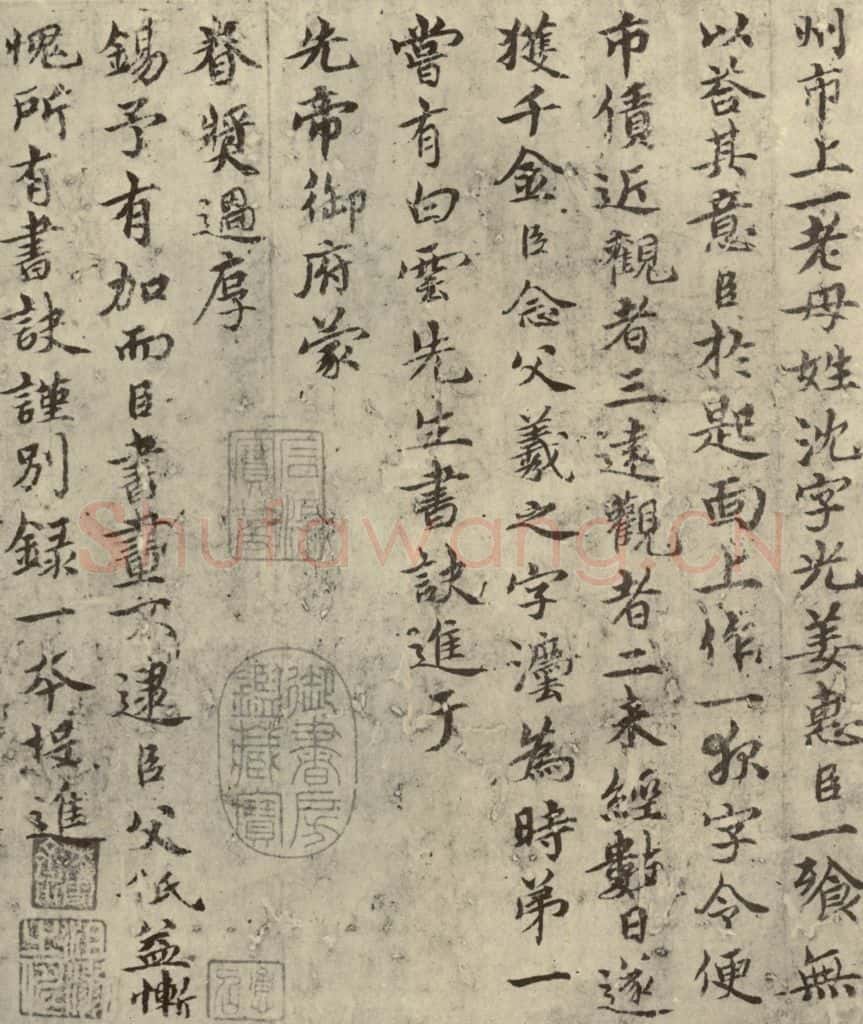 州市上一老母姓沈字光姜惠臣一飱無
以荅其意臣於匙面上作一夜字令便
市債近觀者三遠觀者二来經數日遂
獲千金臣念父羲之字灋為時第一
嘗有白雲先生書訣進于
先帝御府蒙
眷奬過厚
錫予有加而臣書畫不逮臣父祇益慚
愧所有書訣謹別録一本投進
石渠寶笈
御書房鑑藏寶
Shufawang.CN